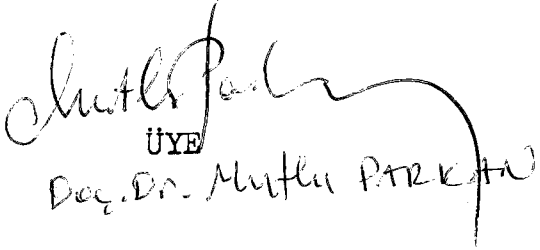 Mutlu Parkan
ÜYE
Doç. Dr. Mutlu PARKAN